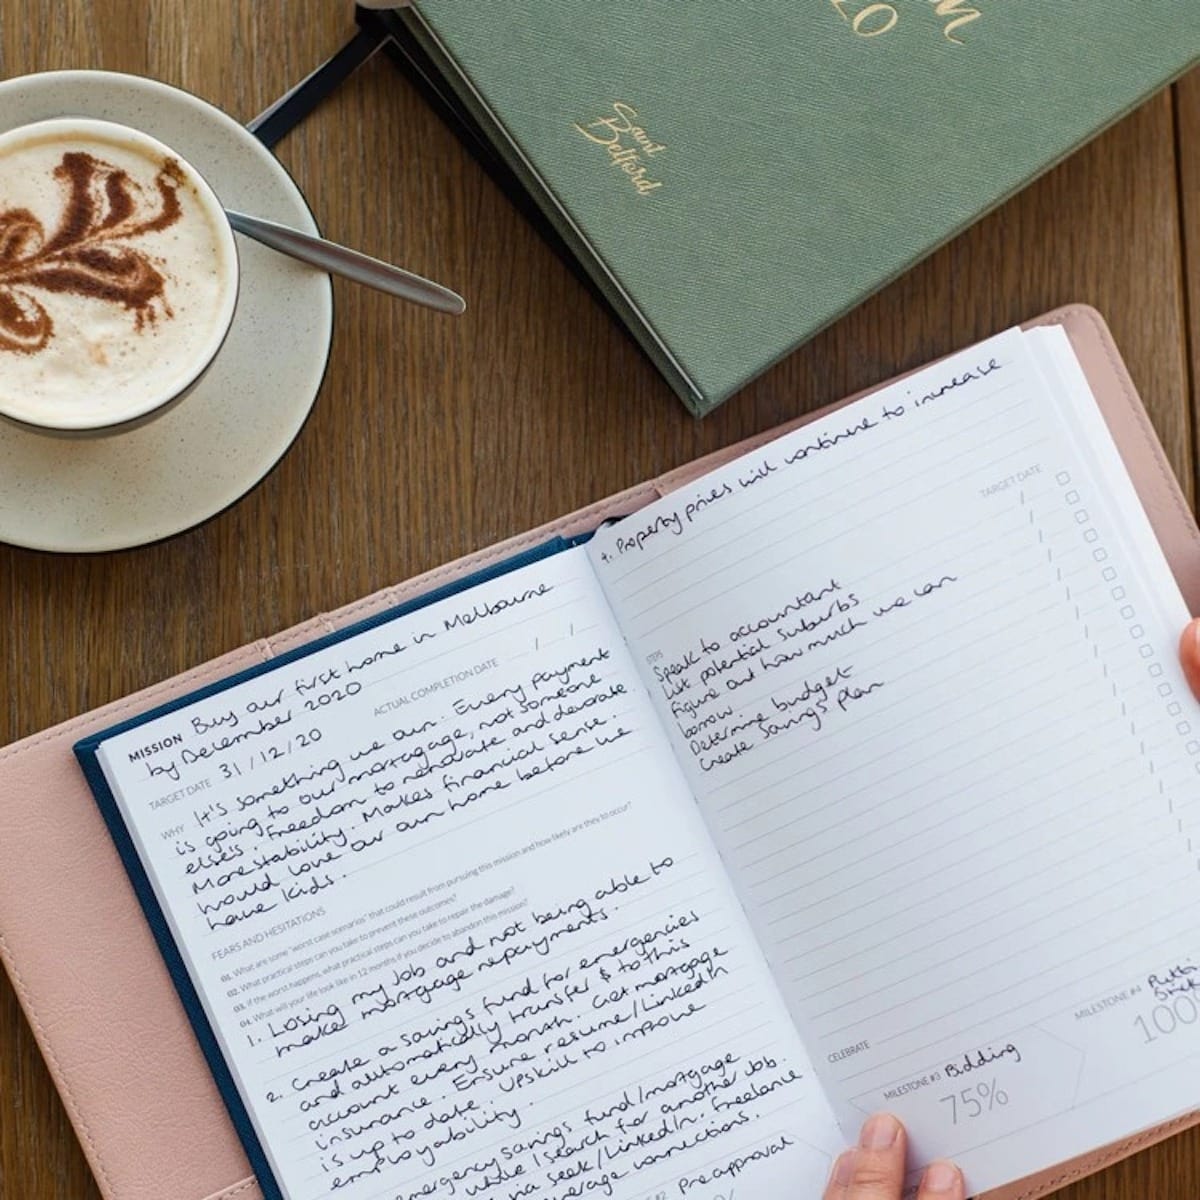 20
Saint
Belford
MISSION Buy our first home in Melbourne
by December 2020
TARGET DATE 31/12/20
ACTUAL COMPLETION DATE / /
WHY It's something we own. Every payment
is going to our mortgage, not someone
else's. Freedom to renovate and decorate.
More stability. Makes financial sense.
Would love our own home before we
have kids.
FEARS AND HESITATIONS
01. What are some "worst case scenarios" that could result from pursuing this mission and how likely are they to occur?
02. What practical steps can you take to prevent these outcomes?
03. If the worst happens, what practical steps can you take to repair the damage?
04. What will your life look like in 12 months if you decide to abandon this mission?
1. Losing my job and not being able to
make mortgage repayments.
2. Create a savings fund for emergencies
and automatically transfer $ to this
account every month. Get mortgage
insurance. Ensure resume/LinkedIn
is up to date. Upskill to improve
employability.
emergency savings fund/mortgage
while I search for another job
via seek/LinkedIn. Freelance
connections.
Pre approval
4. Property prices will continue to increase
TARGET DATE
STEPS
Speak to accountant
List potential suburbs
Figure out how much we can
borrow
Determine budget
Create savings plan
CELEBRATE
MILESTONE #3 Bidding
75%
MILESTONE #4
100